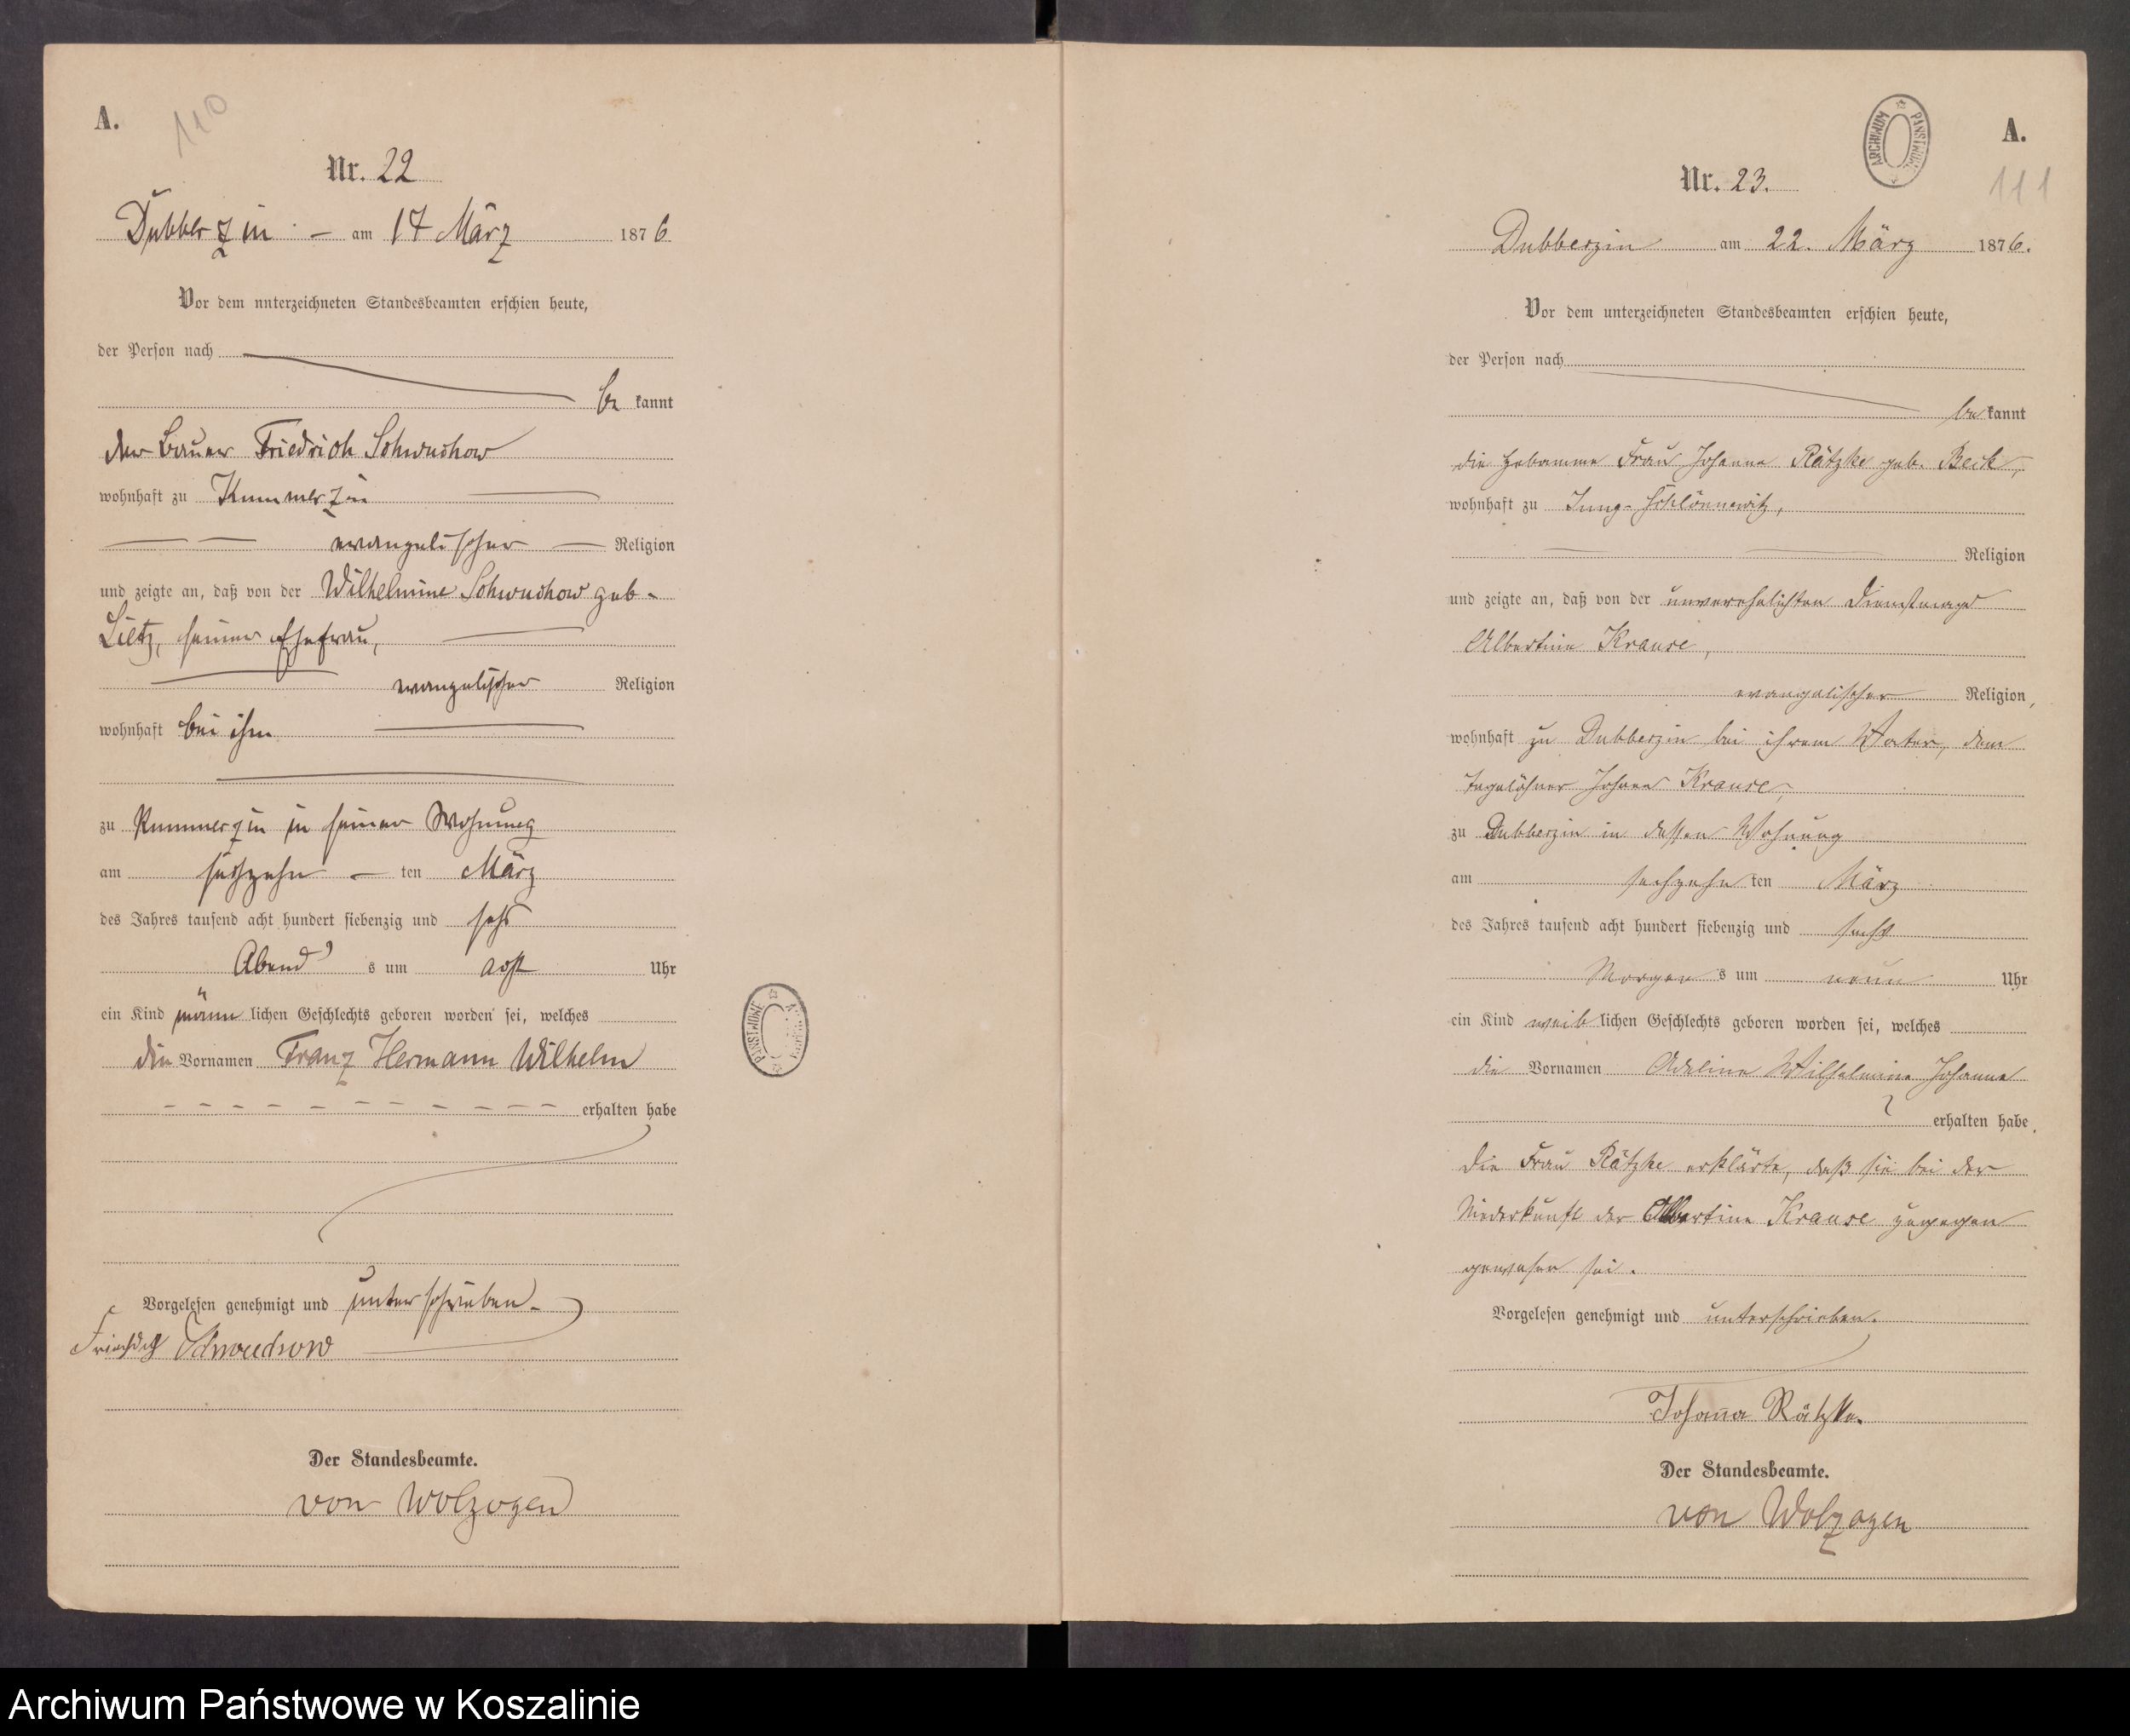 A.
110
Nr. 22
Dubberzin - am 17 März 1876
Vor dem unterzeichneten Standesbeamten erschien heute,
der Person nach
be kannt
der Bauer Friedrich Schwuchow
wohnhaft zu Kummerzin
evangelischer Religion
und zeigte an, daß von der Wilhelmine Schwuchow geb.
Lietz, seiner Ehefrau,
evangelischer Religion
wohnhaft bei ihm
zu Kummerzin in seiner Wohnung
am sechzehn ten März
des Jahres tausend acht hundert siebenzig und sechs
Abend s um acht Uhr
ein Kind männ lichen Geschlechts geboren worden sei, welches
die Vornamen Franz Hermann Wilhelm
erhalten habe
Vorgelesen genehmigt und unterschrieben.
Friedrich Schwuchow
Der Standesbeamte.
von Wolzogen
PANSTWOWE
A.
ARCHIWUM PANSTWOWE
111
Nr. 23.
Dubberzin am 22. März 1876.
Vor dem unterzeichneten Standesbeamten erschien heute,
der Person nach
be kannt
die Hebamme Frau Johanna Rätzke geb. Beck,
wohnhaft zu Jung-Schlönnewitz,
Religion
und zeigte an, daß von der unverehelichten Dienstmagd
Albertine Krause,
evangelischer Religion,
wohnhaft zu Dubberzin bei ihrem Vater, dem
Tagelöhner Johann Krause,
zu Dubberzin in dessen Wohnung
am sechzehn ten März
des Jahres tausend acht hundert siebenzig und sechs
Morgen s um neun Uhr
ein Kind weib lichen Geschlechts geboren worden sei, welches
die Vornamen Adeline Wilhelmine Johanne
erhalten habe.
Die Frau Rätzke erklärte, daß sie bei der
Niederkunft der Albertine Krause zugegen
gewesen sei.
Vorgelesen genehmigt und unterschrieben.
Johanna Rätzke.
Der Standesbeamte.
von Wolzogen
Archiwum Państwowe w Koszalinie